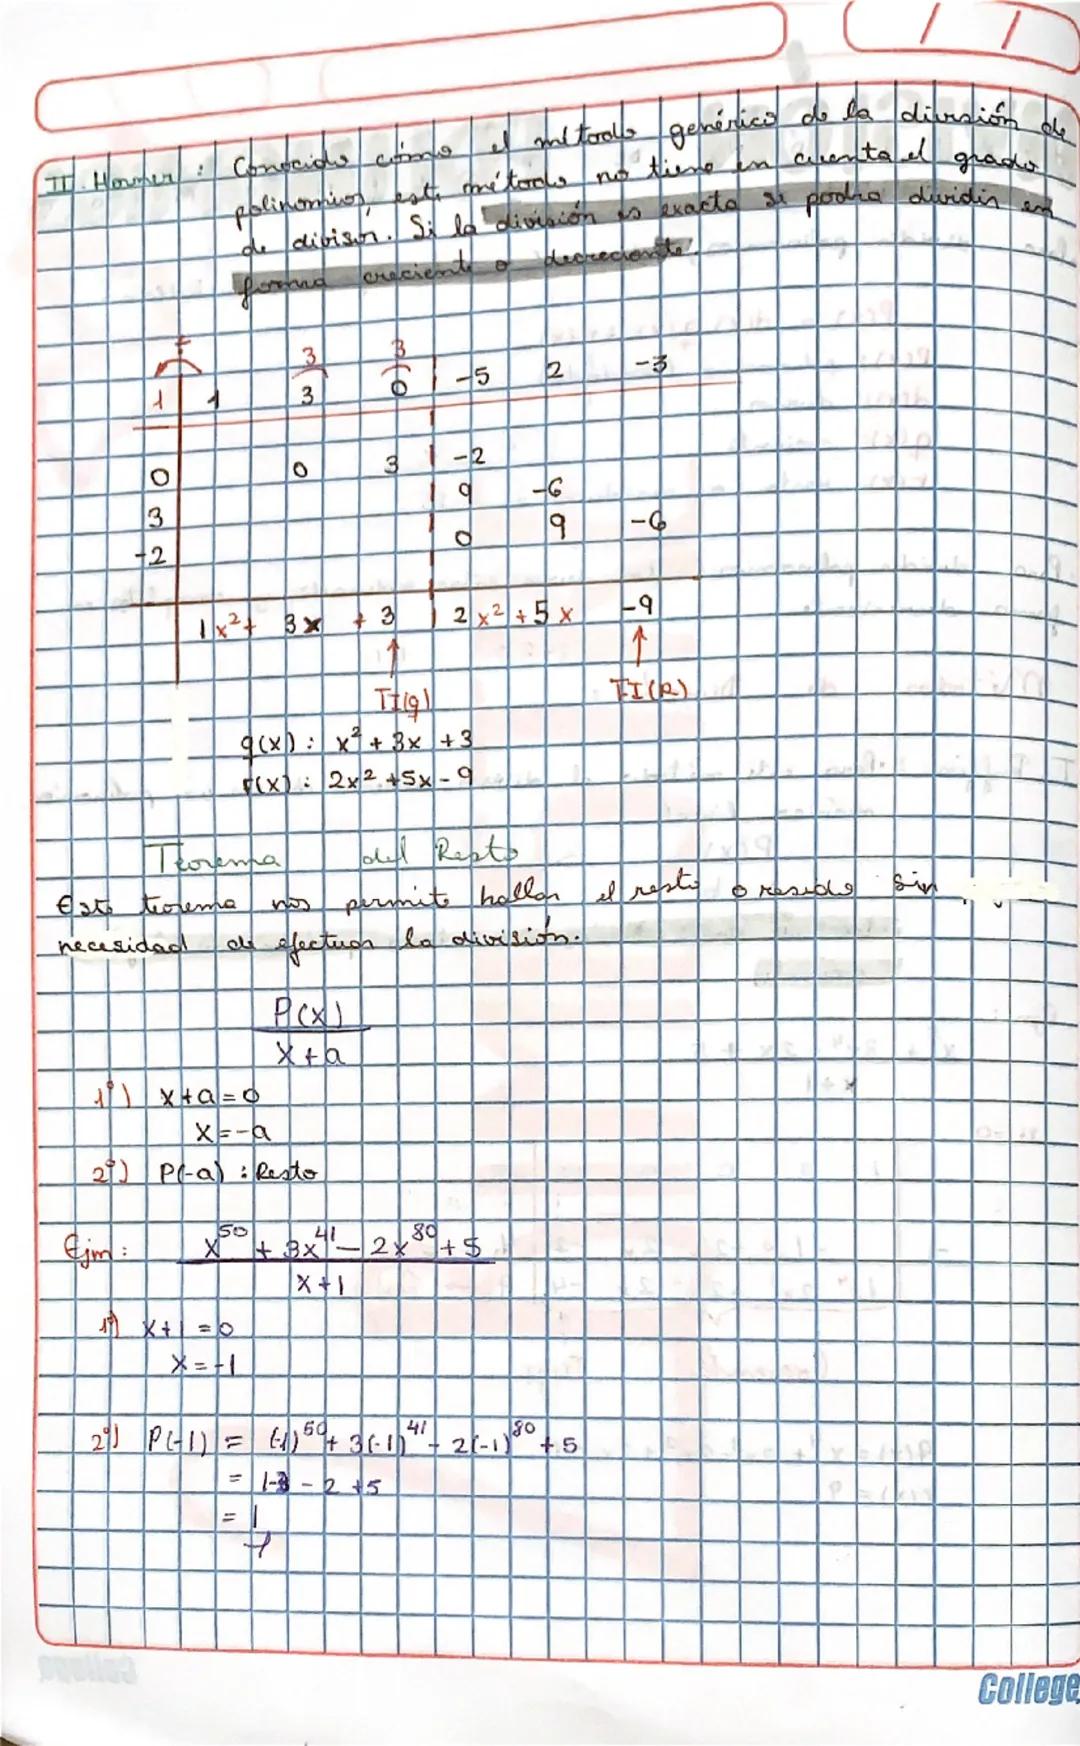 II. Horner : Conocido cómo el método genérico de la división de
polinomios, este método no tiene en cuenta el grado
de divisor. Si la división es exacta se podra dividir en
forma creciente o decreciente.
3 3
1 1 3 0 -5 2 -3
0 0 3 -2
3 9 -6
-2 0 9 -6
1x²+ 3x + 3 2x² +5x -9
TI(q) TI(R)
q(x) : x² + 3x + 3
r(x) : 2x² +5x - 9
Teorema del Resto
Este teorema nos permite hallar el resto o residuo sin
necesidad de efectuar la división.
P(x)
x+a
1º) x+a=0
x=-a
2º) P(-a) : Resto
Ejm : x⁵⁰ + 3x⁴¹ - 2x⁸⁰ + 5
x+1
1º) x+1 = 0
x = -1
2º) P(-1) = (-1)⁵⁰ + 3(-1)⁴¹ - 2(-1)⁸⁰ + 5
= 1-3 - 2 +5
= 1
College